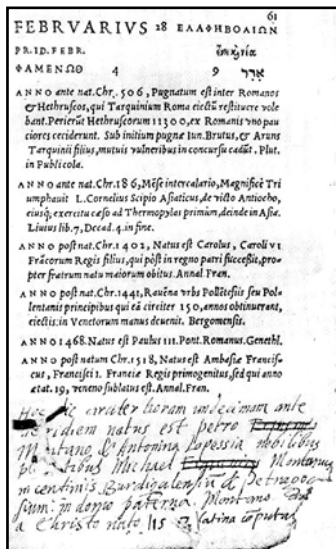 61
FEBRVARIVS 28 ΕΛΑΦΗΒΟΛΙΩΝ
PR. ID. FEBR.
ΦΑΜΕΝΩΘ 4 9 אדר
ANNO ante nat. Chr. 506, Pugnatum est inter Romanos
& Hethruscos, qui Tarquinium Roma eiectũ restituere vole
bant. Perierũt Hethruscorum 11300, ex Romanis vno pau
ciores ceciderunt. Sub initium pugnæ Iun. Brutus, & Aruns
Tarquinii filius, mutuis vulneribus in concursu cadũt. Plut.
in Publicola.
ANNO ante nat. Chr. 186, Mẽse intercalario, Magnificè Tri
umphauit L. Cornelius Scipio Asiaticus, de victo Antiocho,
eiusq; exercitu cæso ad Thermopylas primùm, deinde in Asia.
Liuius lib. 7, Decad. 4. in fine.
ANNO post nat. Chr. 1402, Natus est Carolus, Caroli VI
Frãcorum Regis filius, qui pòst in regno patri successit, pro-
pter fratrum natu maiorum obitus. Annal. Fran.
ANNO post nat. Chr. 1441, Rauẽna vrbs Pollẽtesiis seu Pol-
lentanis principibus qui eã circiter 150, annos obtinuerant,
eiectis: in Venetorum manus deuenit. Bergomensis.
ANNO 1468. Natus est Paulus III. Pont. Romanus. Genethl.
ANNO post natum Chr. 1518, Natus est Ambasiæ Francis-
cus, Francisci I. Franciæ Regis primogenitus, sed qui anno
ætat. 19, veneno sublatus est. Annal. Fran.
circiter horam undecimam ante
meridiem natus est petro
Montano & Antonina Lopessia nobilibus
parentibus Michael Montanus
in confiniis Burdigalensiũ & petragor
sium: in domo paterna Montano
a Christo nato 1533 ratina cõputat